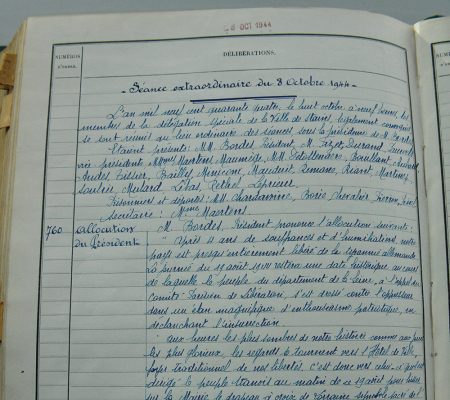 OCT 1944
NUMÉROS
D'ORDRE
DÉLIBÉRATIONS.
NUMÉROS
D'ORDRE
Séance extraordinaire du 8 Octobre 1944
L'an mil neuf cent quarante quatre, le huit octobre, à neuf heures, les
membres de la délégation spéciale de la Ville de Stains, légalement convoqués
se sont réunis au lieu ordinaire des séances sous la présidence de M. Bordes
Etaient présents: MM. Bordes Président, M. Durand,
vice président MMmes Maertens MM.
Tissier, Bailles,
Prisonniers et déportés: MM. Chardavoine, Chevalier
Secrétaire: Mme Maertens
760
Allocution
du Président
M. Bordes, Président prononce l'allocution suivante:
"Après 4 ans de souffrances et d'humiliations, notre
pays est presqu'entièrement libéré de la tyrannie allemande
La journée du 19 août 1944 restera une date historique au cours
de laquelle le peuple du département de la Seine, à l'appel du
Comité Parisien de Libération, s'est dressé contre l'oppresseur
dans un élan magnifique d'enthousiasme patriotique, en
déclanchant l'insurrection.
"Aux heures les plus sombres de notre histoire comme aux jours
les plus glorieux, les regards se tournent vers l'Hôtel de Ville,
traditionnel de nos libertés. C'est donc vers celui-ci qu'est
dirigé le peuple Stanois au matin de ce 19 août pour hisser
sur la Mairie le drapeau à croix de Lorraine symbole sacré de